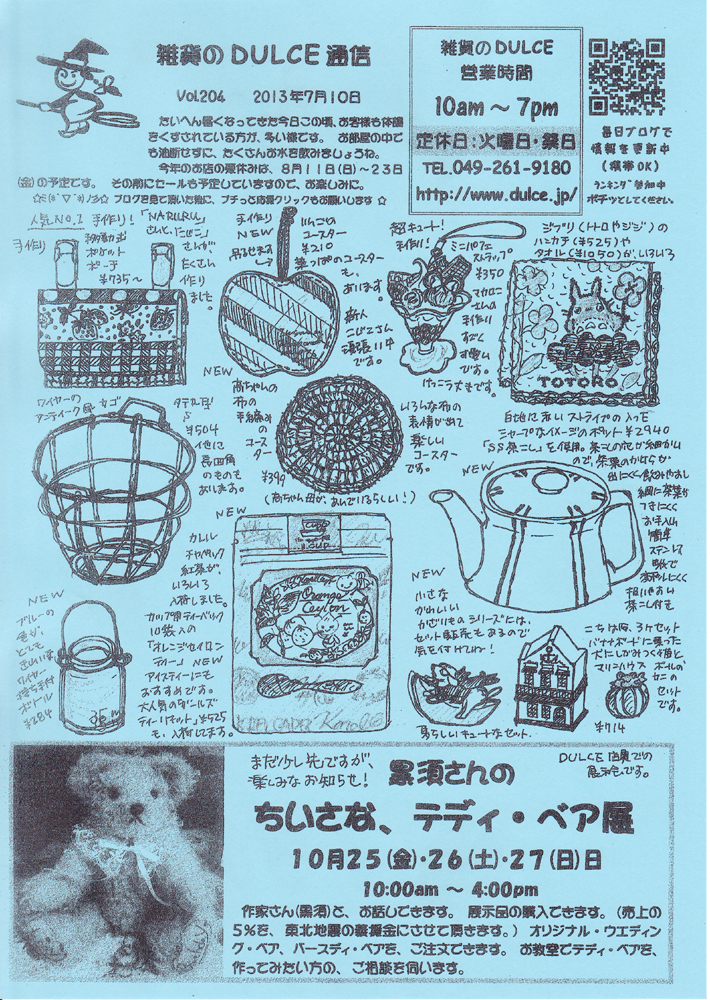 雑貨のDULCE通信
Vol.204 2013年7月10日
たいへん暑くなってきた今日この頃、お客様も体調
をくずされている方が、多い様です。 お部屋の中で
も油断せずに、たくさんお水を飲みましょうね。
今年のお店の夏休みは、8月11日(日)〜23日
(金)の予定です。 その前にセールも予定していますので、お楽しみに。
ブログを見て頂いた際に、プチっと応援クリックもお願いします ☆
雑貨のDULCE
営業時間
10am 〜 7pm
定休日:火曜日・祭日
TEL.049-261-9180
http://www.dulce.jp/
毎日ブログで
情報を更新中
(携帯OK)
ランキング参加中
ポチッとしてください。
人気NO.1 手作り!
手作り
ポケット
ポーチ
¥735〜
「NARURU」
さんが
たくさん
作り
ました。
手作り
NEW
りんごの
コースター
¥210
葉っぱのコースター
も、
あります。
新人
こじこさん
頑張り中
です。
超キュート!
手作り!
ミニパフェ
ストラップ
¥350
マカロニ
さんの
手作り
すごく
可愛い
です。
バニラ大きです。
ジブリ(トトロやジジ)の
ハンカチ(¥525)や
タオル(¥1050)が、いろいろ
TOTORO
ワイヤーの
アンティーク風カゴ
¥504
他に
長四角
のものも
あります。
NEW
赤ちゃんの
布の
手編みの
コース
ター
¥399
いろんな布の
表情が出て
楽しい
コースター
です。
白地に赤いストライプの入った
シャープなイメージのポット ¥2940
「SS茶こし」を使用。茶こしの穴が細かい
ので、茶葉のかけらが
出にくく飲みやすい
細かい茶葉が
お手入れ
簡単
ステンレス
NEW
NEW
カレル
チャペック
紅茶が、
いろいろ
入荷しました。
カップ用ティーバッグ
10袋入の
「オレンジセイロン
ティー」NEW
アイスティーにも
おすすめです。
ティー1キット」¥525
も、入荷してます。
CUP OF
Orange
Ceylon
NEW
ブルーの
色が、
とても
きれいな
ワイヤー
持ち手付
ボトル
¥284
NEW
小さな
かわいい
かざりものシリーズには、
セット販売もあるので
気を付けてね!
こちらは、3ヶセット
マリンハウス
セット
です。
¥714
夏らしいキュートなセット。
まだ少し先ですが、
楽しみなお知らせ!
DULCE 店奥での
展示会です。
黒須さんの
ちいさな、テディ・ベア展
10月25(金)・26(土)・27(日)日
10:00am 〜 4:00pm
作家さん(黒須)と、お話しできます。 展示品の購入できます。(売上の
5%を、東北地震の義援金にさせて頂きます。) オリジナル・ウエディン
グ・ベア、バースディ・ベアを、ご注文できます。 お教室でテディ・ベアを、
作ってみたい方の、ご相談を伺います。